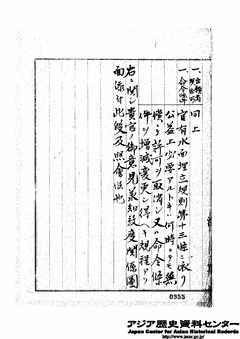 一、出願者 同上
一、命令条件
官有水面埋立規則第十三條ニ依リ
公益上必要アルトキハ何時ニテモ無
償ニテ許可ヲ取消シ又ハ命令條
件ヲ増減変更シ得ヘキ規程アリ
右ニ関シ貴官ノ御意見承知致度関係圖
面添付此段及照會候也
0355
アジア歴史資料センター
Japan Center for Asian Historical Records
http://www.jacar.go.jp/